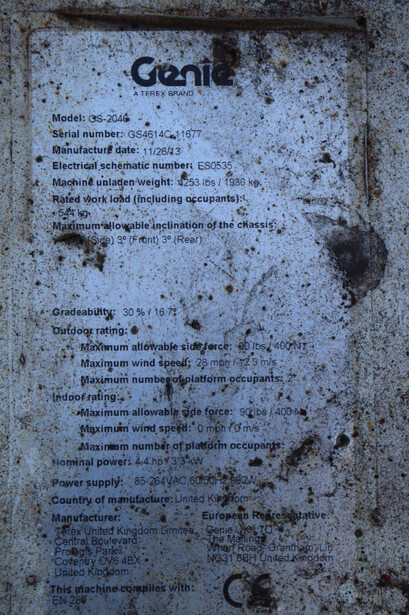 Genie
A TEREX BRAND
Model: GS-2046
Serial number: GS4614C-11677
Manufacture date: 11/26/13
Electrical schematic number: ES0535
Machine unladen weight: 4253 lbs / 1930 kg
Rated work load (including occupants):
544 kg
Maximum allowable inclination of the chassis:
(Side) 3° (Front) 3° (Rear)
Gradeability: 30 % / 16.7°
Outdoor rating:
Maximum allowable side force: 90 lbs / 400 N
Maximum wind speed: 28 mph / 12.5 m/s
Maximum number of platform occupants:
Indoor rating:
Maximum allowable side force: 90 lbs / 400 N
Maximum wind speed: 0 mph / 0 m/s
Maximum number of platform occupants: 2
Nominal power: 4.4 hp / 3.3 kW
Power supply: 85-264VAC 60/50HZ 980W
Country of manufacture: United Kingdom
Manufacturer:
Terex United Kingdom Limited
Central Boulevard
Prologis Park
Coventry CV6 4BX
United Kingdom
European Representative:
Genie UK LTD
The Maltings
Wharf Road, Grantham, Lin
NG31 6BH United Kingdom
This machine complies with:
EN 280
CE